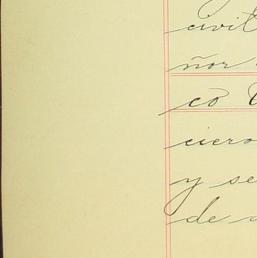 civil
ñor
co
ciero
y se
de